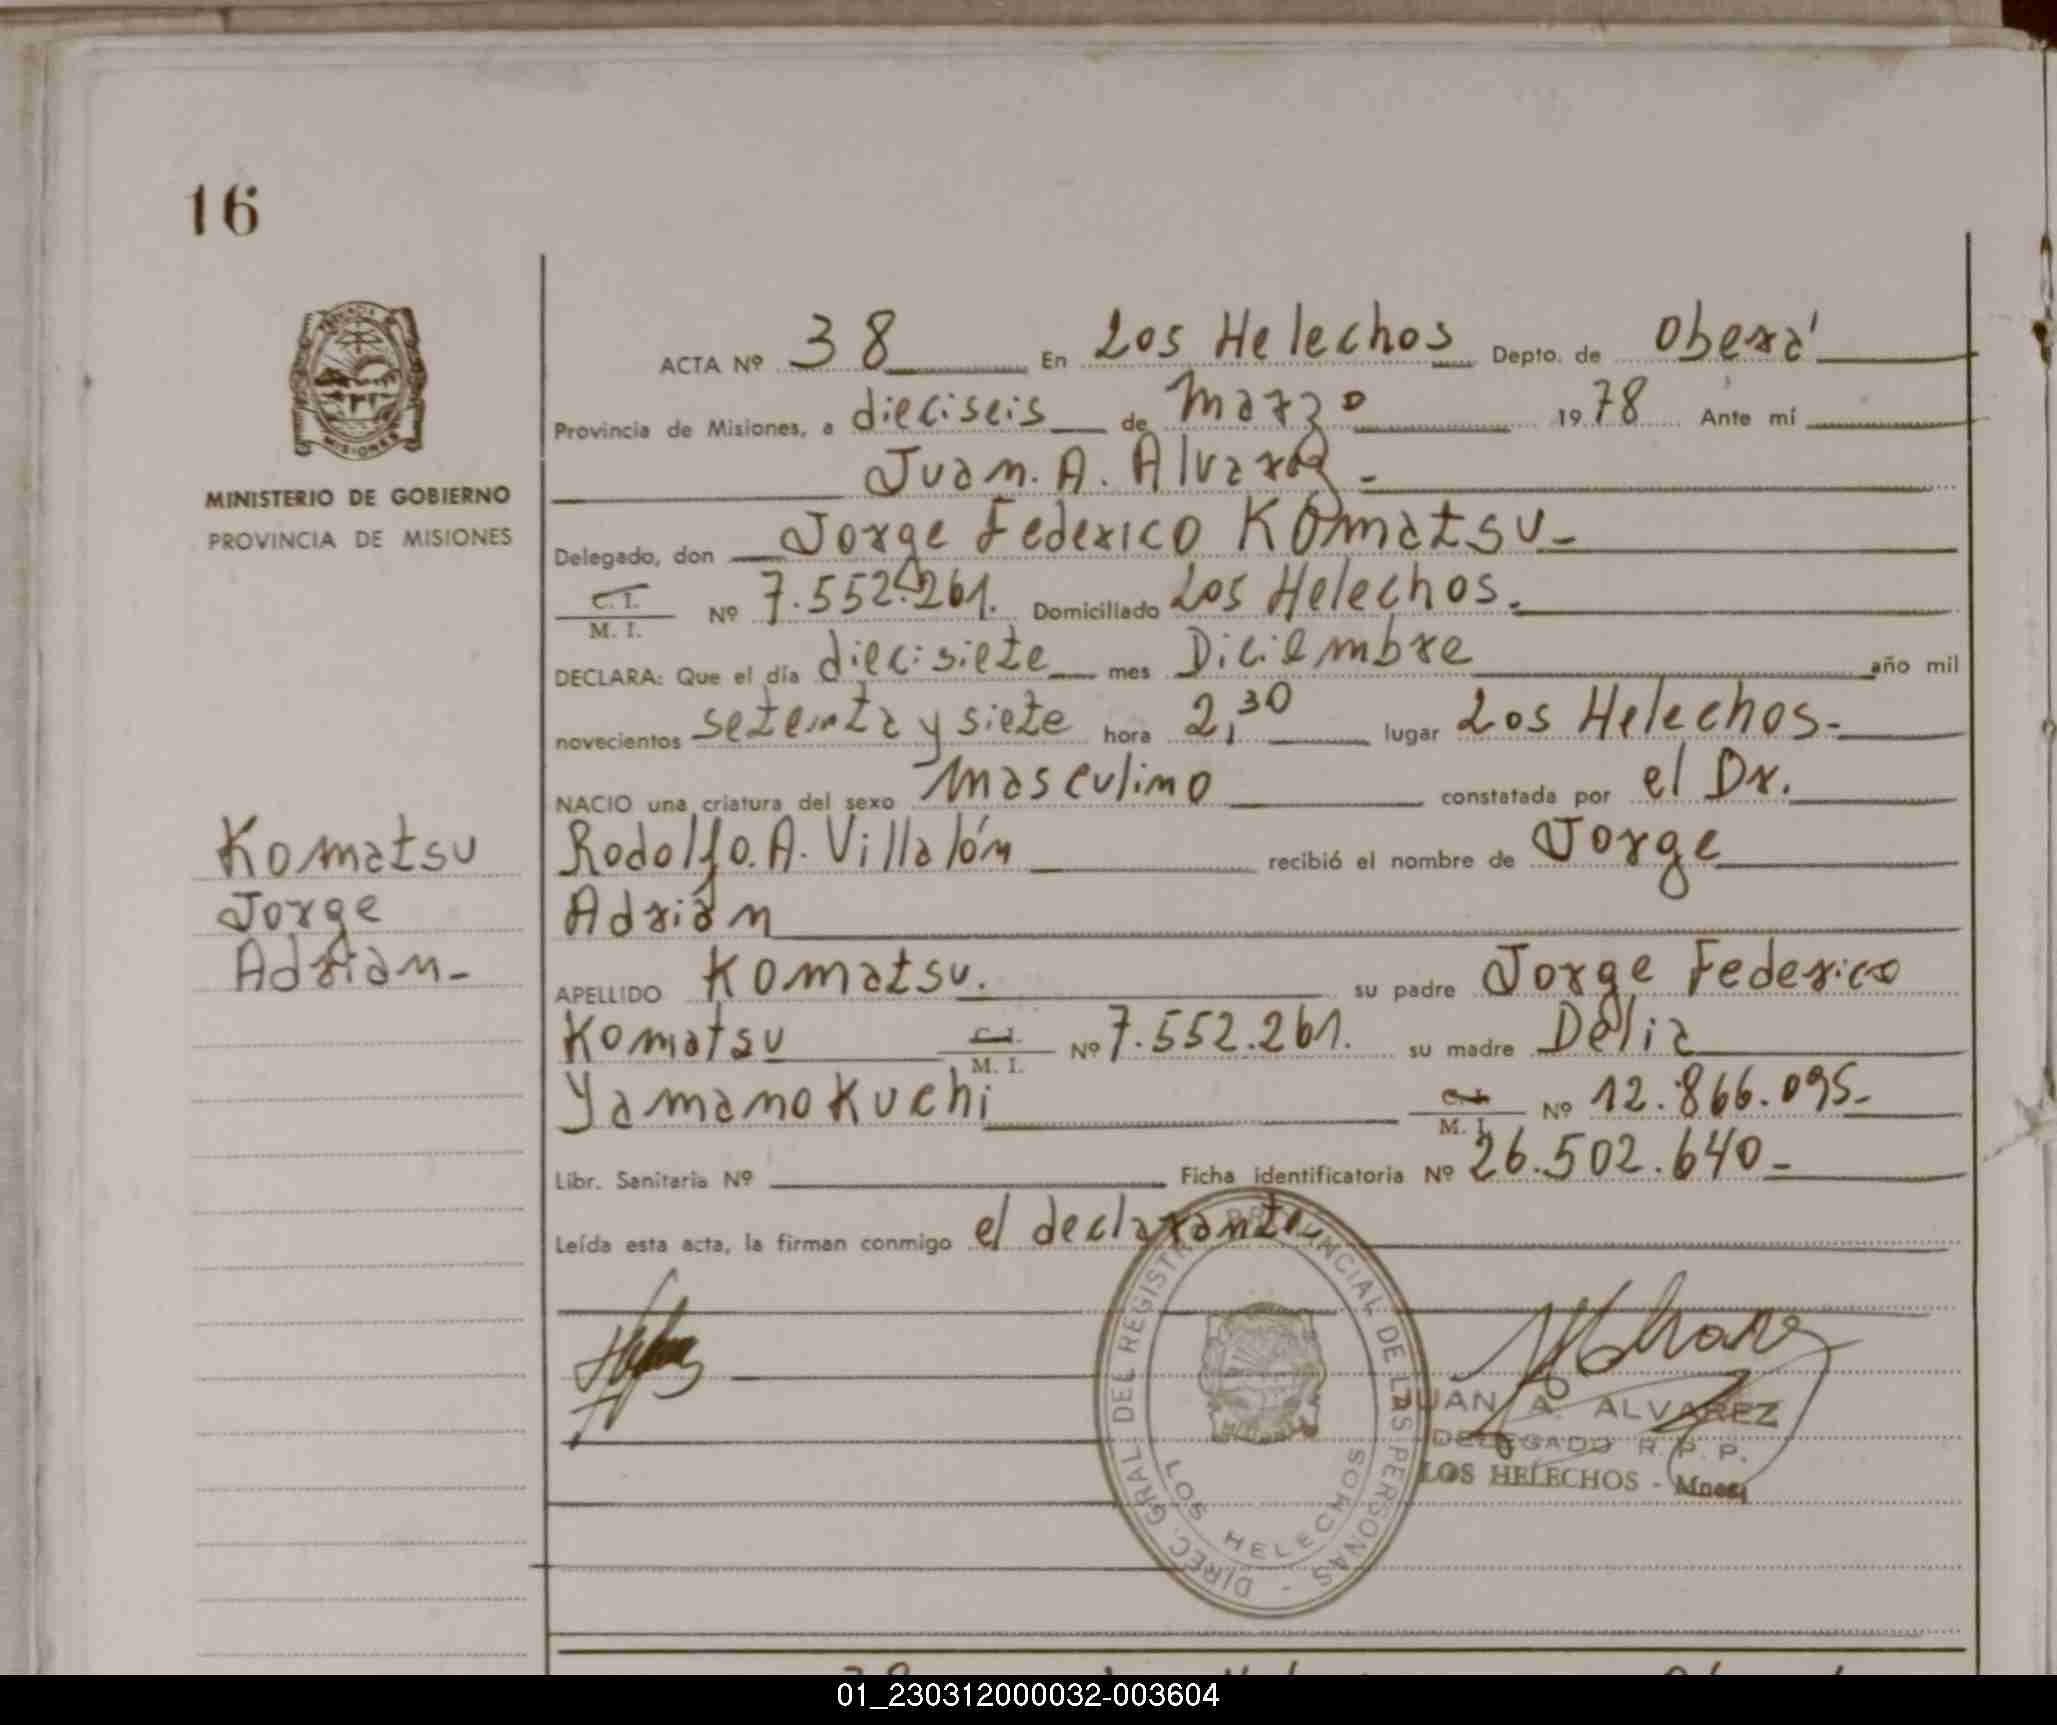 16
PROVINCIA DE
MISIONES
MINISTERIO DE GOBIERNO
PROVINCIA DE MISIONES
Komatsu
Jorge
Adrian-
ACTA Nº 38 En Los Helechos Depto. de Oberá
Provincia de Misiones, a dieciseis de Marzo 1978 Ante mí
Juan. A. Alvarez -
Delegado, don Jorge Federico Komatsu-
C. I.
M. I. Nº 7.552.261. Domiciliado Los Helechos.
DECLARA: Que el día diecisiete mes Diciembre año mil
novecientos setenta y siete hora 2,30 lugar Los Helechos-
NACIO una criatura del sexo Masculino constatada por el Dr.
Rodolfo. A. Villalón recibió el nombre de Jorge
Adrián
APELLIDO Komatsu. su padre Jorge Federico
Komatsu C. I.
M. I. Nº 7.552.261. su madre Delia
Yamanokuchi C. I.
M. I. Nº 12.866.095-
Libr. Sanitaria Nº Ficha identificatoria Nº 26.502.640-
Leída esta acta, la firman conmigo el declarante
DIREC. GRAL. DEL REGISTRO PROVINCIAL DE LAS PERSONAS -
LOS HELECHOS
JUAN A. ALVAREZ
DELEGADO R. P. P.
LOS HELECHOS - Mnes.
01_230312000032-003604